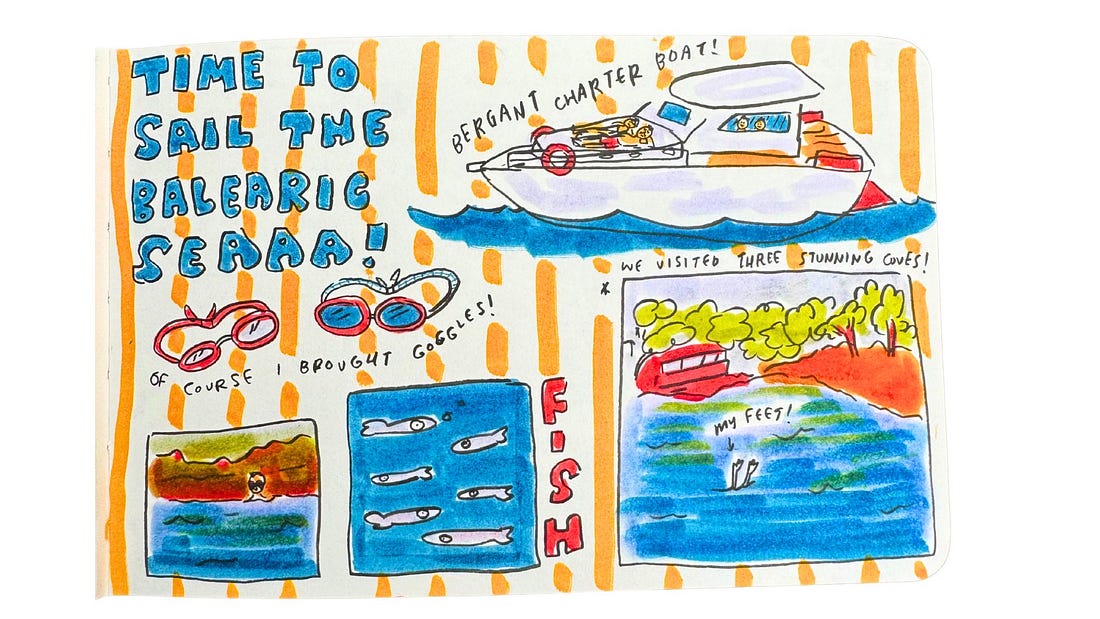 TIME TO
SAIL THE
BALEARIC
SEAAA!
BERGANT CHARTER BOAT!
OF COURSE I BROUGHT GOGGLES!
FISH
* WE VISITED THREE STUNNING COVES!
MY FEET!